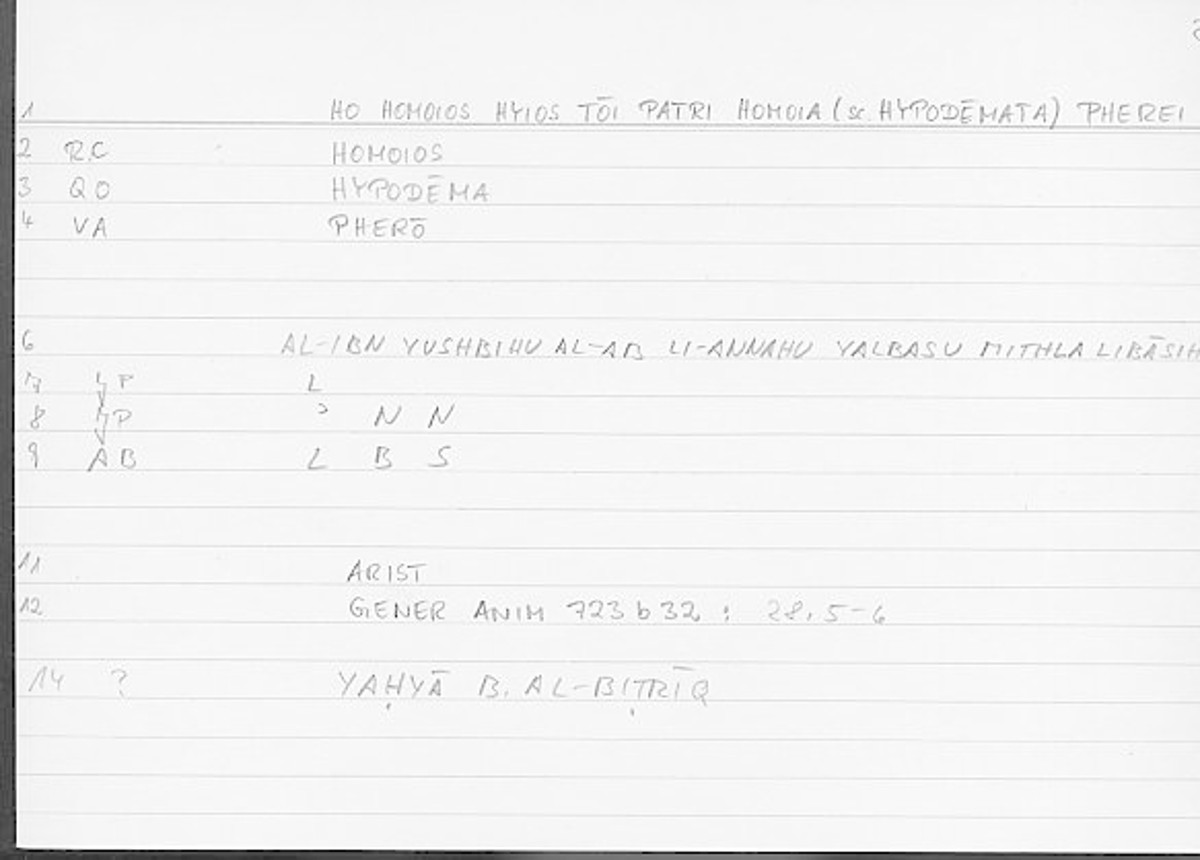 1 HO HOMOIOS HYIOS TŌI PATRI HOMOIA (sc. HYPODĒMATA) PHEREI
2 R.C HOMOIOS
3 QO HYPODĒMA
4 VA PHERŌ
6 AL-IBN YUSHBIHU AL-AB LI-ANNAHU YALBASU MITHLA LIBĀSIH
7 P L
8 P ʾ N N
9 AB L B S
11 ARIST
12 GENER ANIM 723 b 32 : 28,5-6
14 ? YAḤYĀ B. AL-BIṬRĪQ